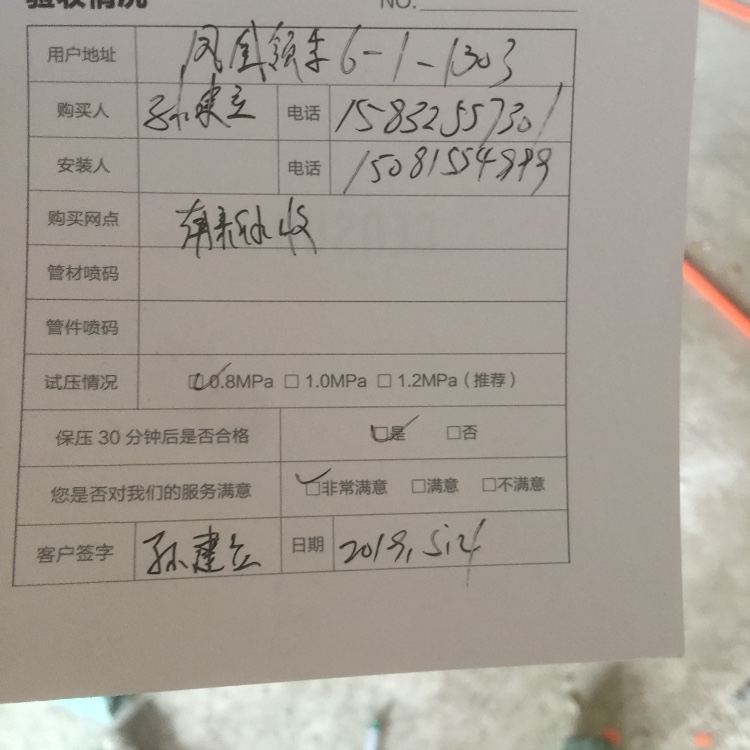 验收情况 NO.
用户地址 凤凰领秀 6-1-1303
购买人 孙建立 电话 15832557301
安装人 电话 15081554999
购买网点
管材喷码
管件喷码
试压情况 ☑0.8MPa □1.0MPa □1.2MPa（推荐）
保压 30 分钟后是否合格 ☑是 □否
您是否对我们的服务满意 ☑非常满意 □满意 □不满意
客户签字 孙建立 日期 2019.5.4